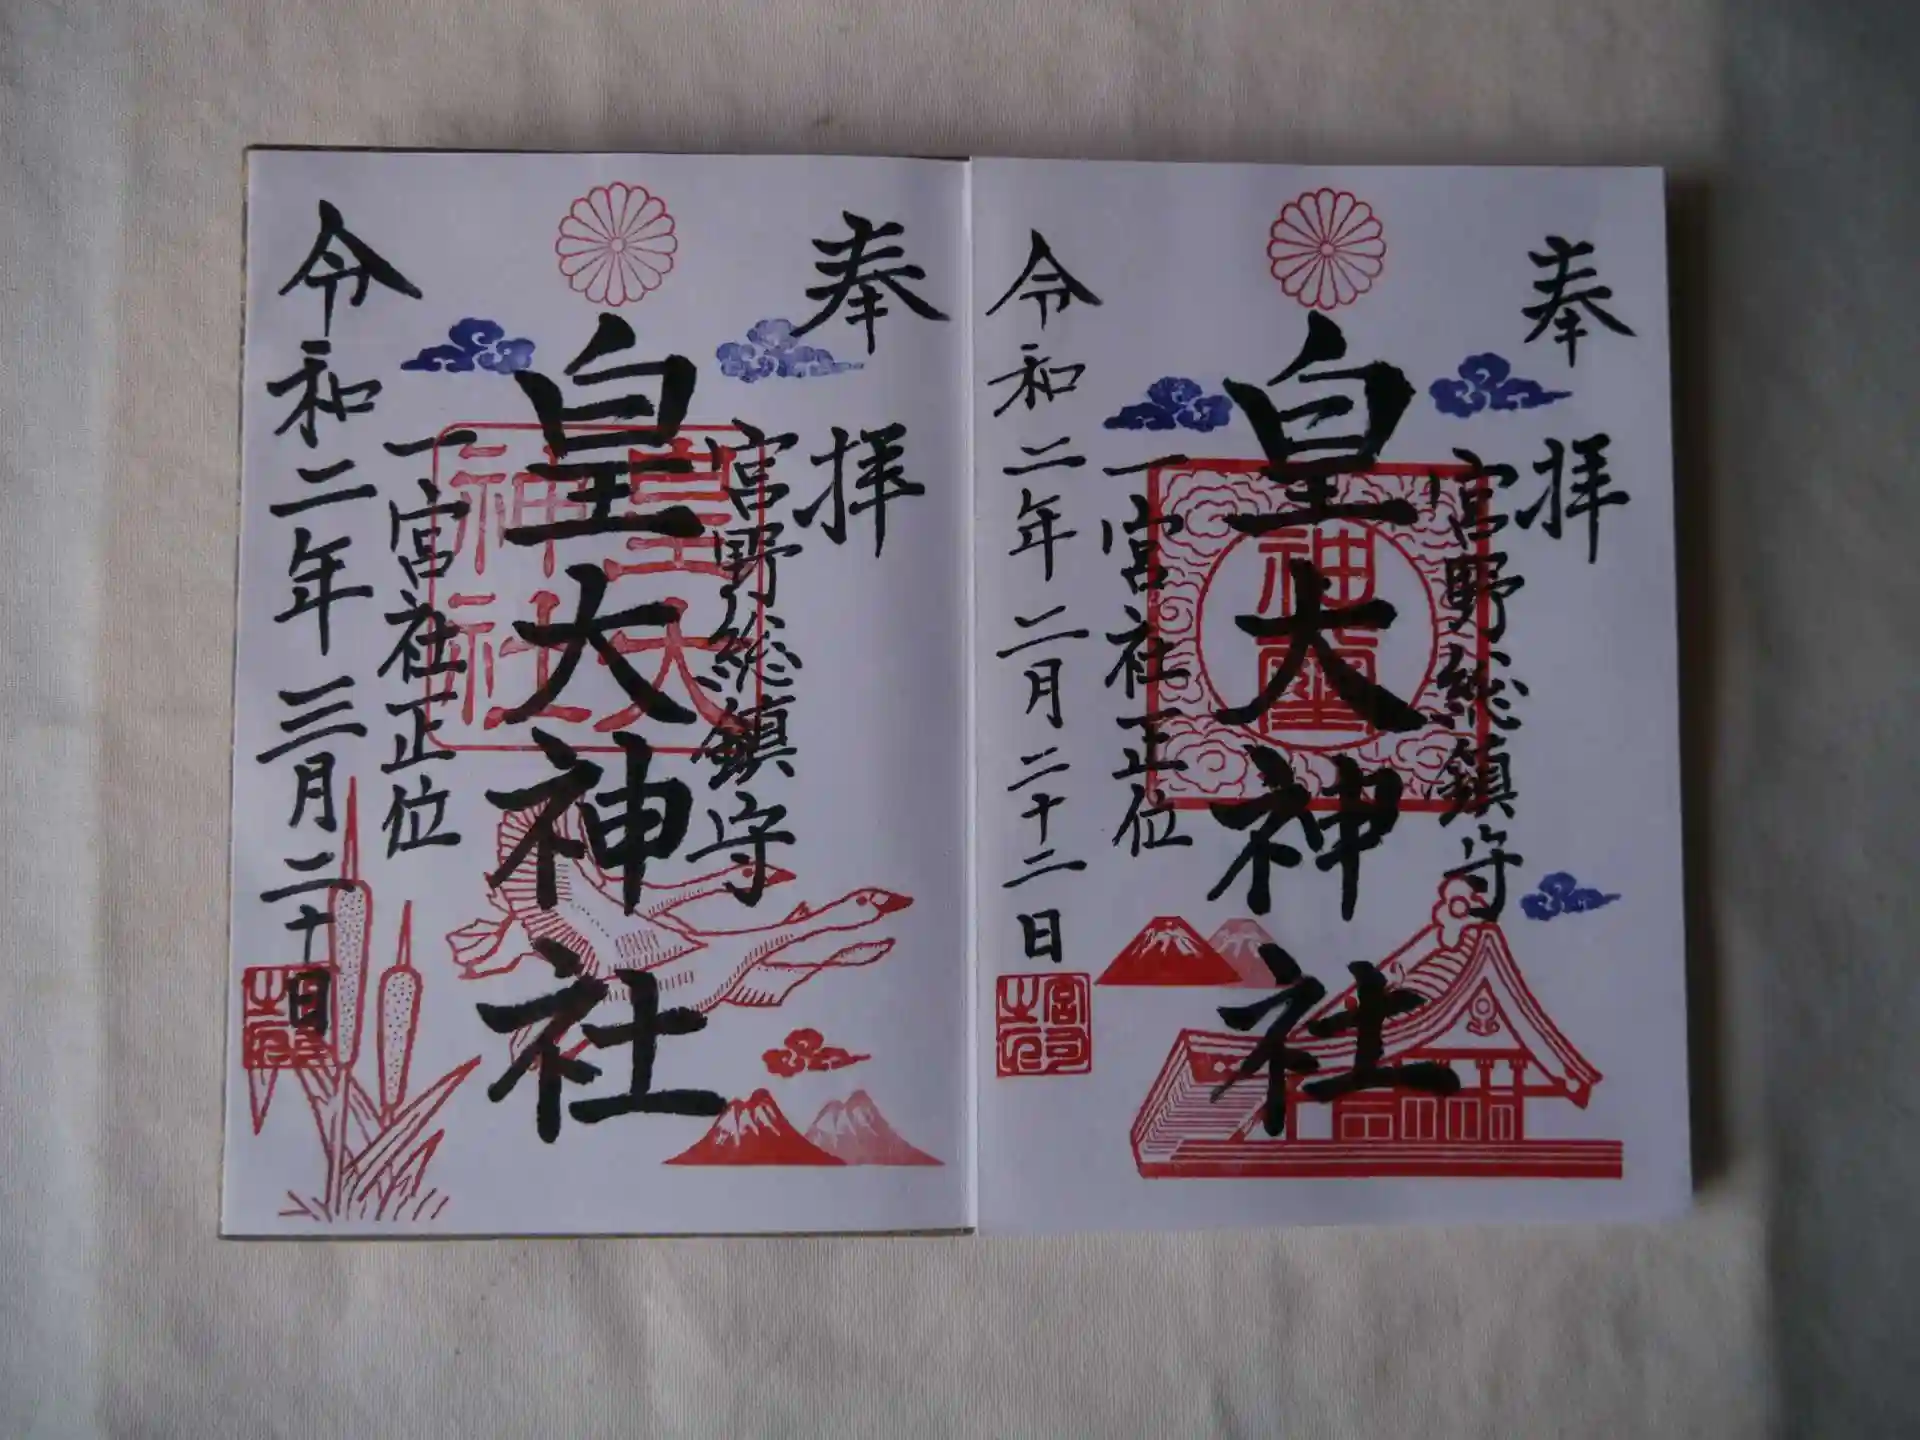 奉拝
宮野総鎮守
皇大神社
一宮社正位
令和二年二月二十二日
神璽
宮司之印
奉拝
宮野総鎮守
皇大神社
一宮社正位
令和二年三月二十日
皇大
神社